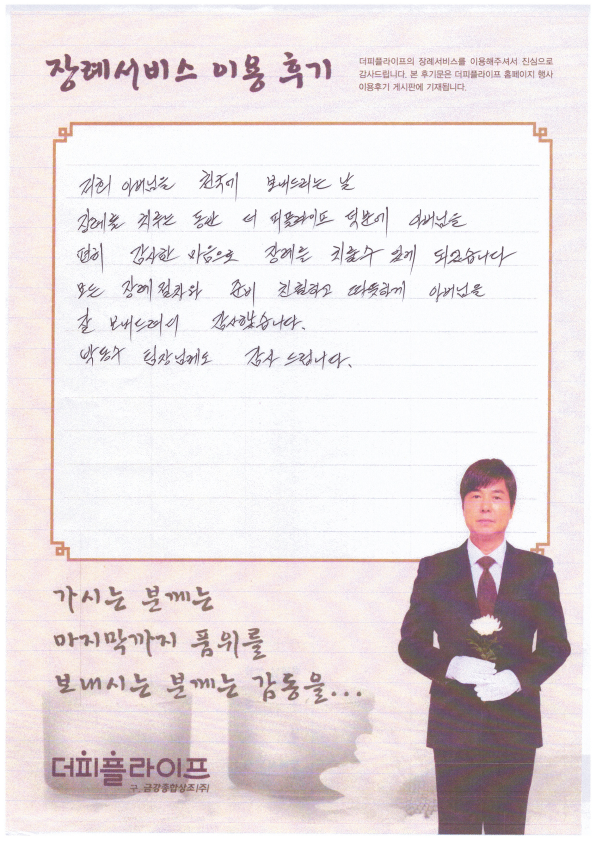 장례서비스 이용 후기
더피플라이프의 장례서비스를 이용해주셔서 진심으로
감사드립니다. 본 후기문은 더피플라이프 홈페이지 행사
이용후기 게시판에 기재됩니다.
저희 아버님을 천국에 보내드리는 날
장례를 치루는 동안 더 피플라이프 덕분에 아버님을
편히 감사한 마음으로 장례를 치룰수 있게 되었습니다
모든 장례절차와 준비 친절하고 따뜻하게 아버님을
잘 보내드려서 감사했습니다.
팀장님께도 감사 드립니다.
가시는 분께는
마지막까지 품위를
보내시는 분께는 감동을...
더피플라이프
구. 금강종합상조(주)